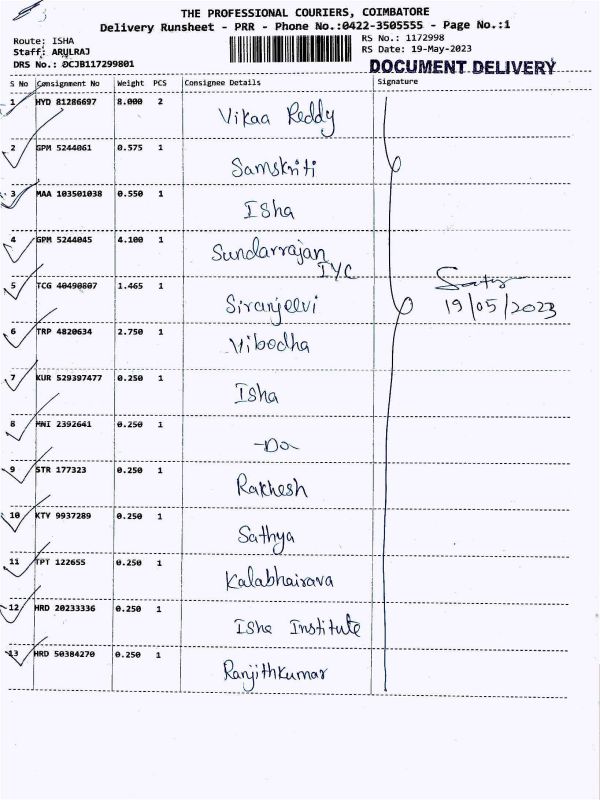 THE PROFESSIONAL COURIERS, COIMBATORE
Delivery Runsheet - PRR - Phone No.:0422-3505555 - Page No.:1
Route: ISHA
Staff: ARULRAJ
DRS No.: DCJB117299801
RS No.: 1172998
RS Date: 19-May-2023
DOCUMENT DELIVERY
S No Consignment No Weight PCS Consignee Details Signature
1 HYD 81286697 8.000 2 Vikaa Reddy
2 GPM 5244061 0.575 1 Samskriti
3 MAA 103501038 0.550 1 Isha
4 GPM 5244045 4.100 1 Sundarrajan
IYC
5 TCG 40490807 1.465 1 Siranjeevi
19/05/2023
6 TRP 4820634 2.750 1 Vibodha
7 KUR 529397477 0.250 1 Isha
8 MNI 2392641 0.250 1 -Do-
9 STR 177323 0.250 1 Rakhesh
10 KTY 9937289 0.250 1 Sathya
11 TPT 122655 0.250 1 Kalabhairava
12 HRD 20233336 0.250 1 Isha Institute
13 HRD 50384270 0.250 1 Ranjithkumar